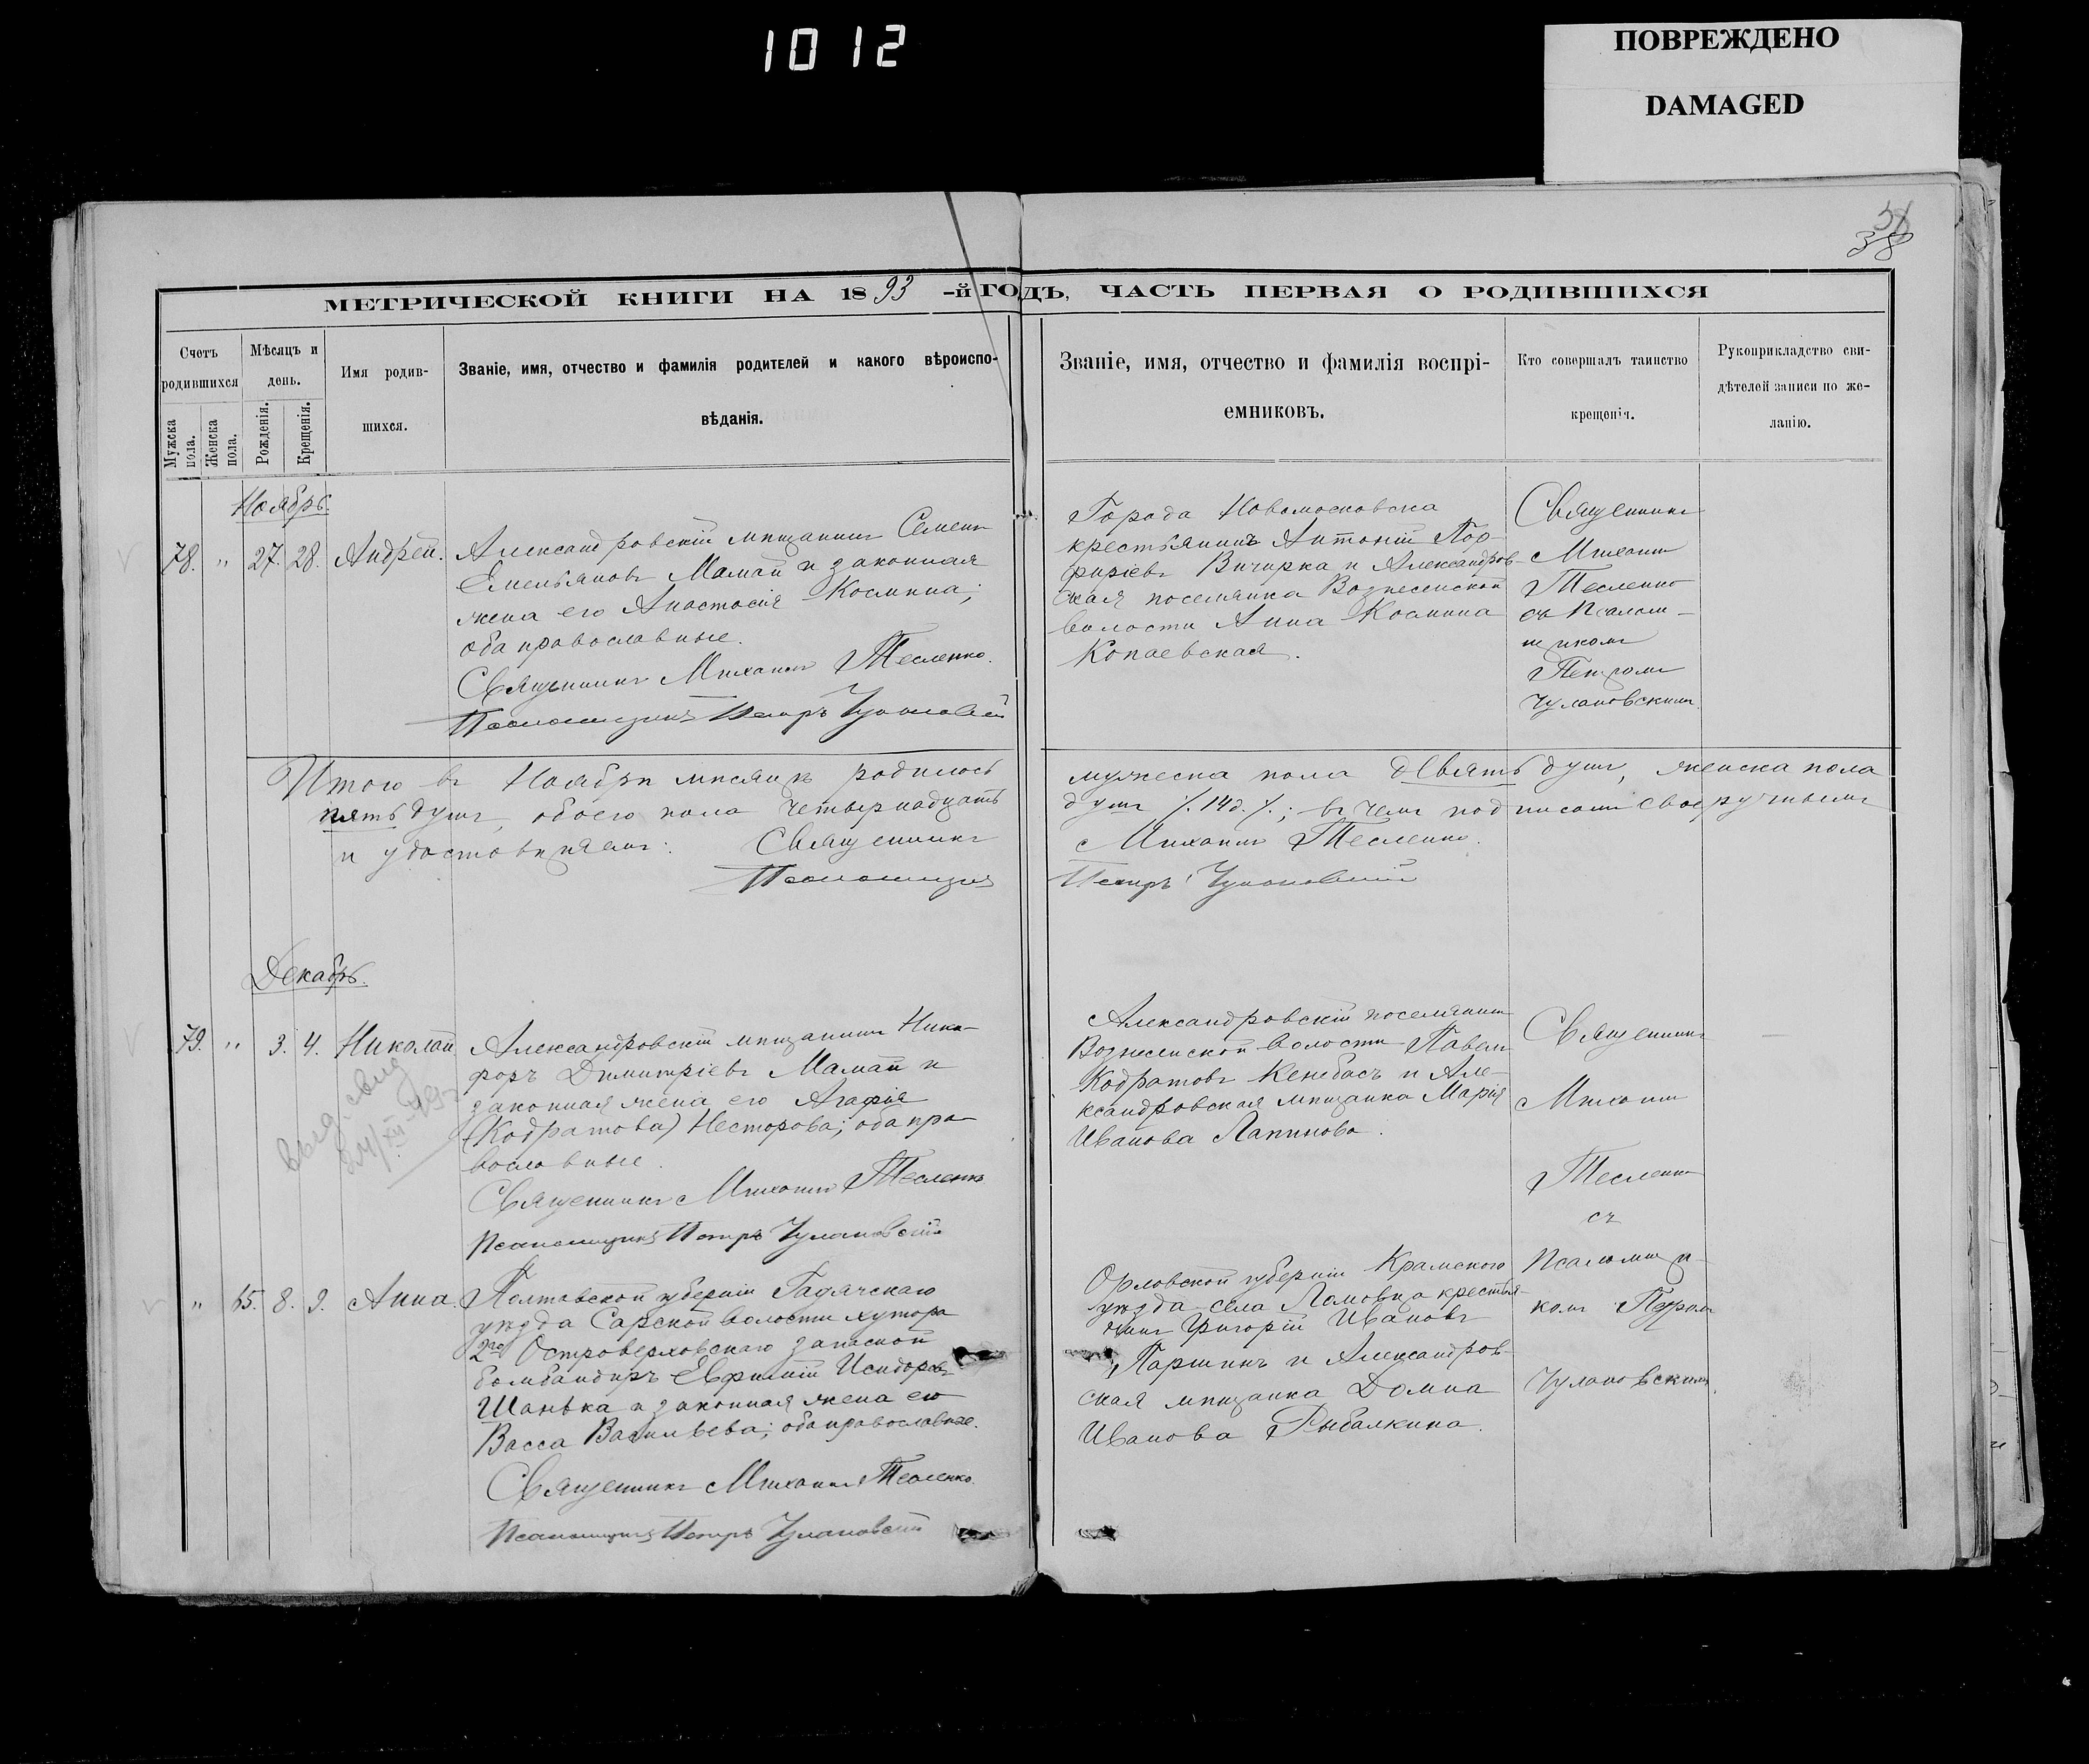 1012
ПОВРЕЖДЕНО
DAMAGED
38
МЕТРИЧЕСКОЙ КНИГИ НА 1893-й ГОДЪ, ЧАСТЬ ПЕРВАЯ О РОДИВШИХСЯ
Счетъ родившихся
Мужска пола.
Женска пола.
Мѣсяцъ и день.
Рожденія.
Крещенія.
Имя родив-
шихся.
Званіе, имя, отчество и фамилія родителей и какого вѣроиспо-
вѣданія.
Званіе, имя, отчество и фамилія воспрі-
емниковъ.
Кто совершалъ таинство
крещенія.
Рукоприкладство сви-
дѣтелей записи по же-
ланію.
Ноябрь.
78. " 27. 28. Андрей.
Александровскій мѣщанинъ Семенъ
Емельяновъ Мамай и законная
жена его Анастасія Космина;
оба православные.
Священникъ Михаилъ Тесленко.
Псаломщикъ Петръ Чулановскій
Города Новомосковска
крестьянинъ Антоній Пор-
фиріевъ Вичирка и Александров-
ская поселянка Вознесенской
волости Анна Космина
Копаевская.
Священникъ
Михаилъ
Тесленко
съ Псалом-
щикомъ
Петромъ
Чулановскимъ.
Итого въ Ноябрѣ мѣсяцѣ родилось мужеска пола девять душъ, женска пола
пять душъ, обоего пола четырнадцать душъ /.14д./.; въ чемъ подписомъ своеручнымъ
и удостовѣряемъ: Священникъ Михаилъ Тесленко.
Псаломщикъ Петръ Чулановскій
Декабрь.
79. " 3. 4. Николай
Александровскій мѣщанинъ Ники-
форъ Димитріевъ Мамай и
законная жена его Агафія
(Кодратова) Несторова; оба пра-
вославные.
Священникъ Михаилъ Тесленко
Псаломщикъ Петръ Чулановскій
Александровскій поселянинъ
Вознесенской волости Павелъ
Кодратовъ Кенебасъ и Але-
ксандровская мѣщанка Марія
Иванова Лапинова.
Священникъ
Михаилъ
Тесленко
съ
Псаломщи-
комъ Петромъ
Чулановскимъ.
выд. свид.
" 65. 8. 9. Анна.
Полтавской губерніи Гадячскаго
уѣзда Сарской волости хутора
2го Островерховскаго запасной
бомбандиръ Евфимій Исидоровъ
Шанька и законная жена его
Васса Васильева; оба православные.
Священникъ Михаилъ Тесленко.
Псаломщикъ Петръ Чулановскій
Орловской губерніи Крамского
уѣзда села Ломовца крестья-
нинъ Григорій Ивановъ
Паршинъ и Александров-
ская мѣщанка Домна
Иванова Рыбалкина.